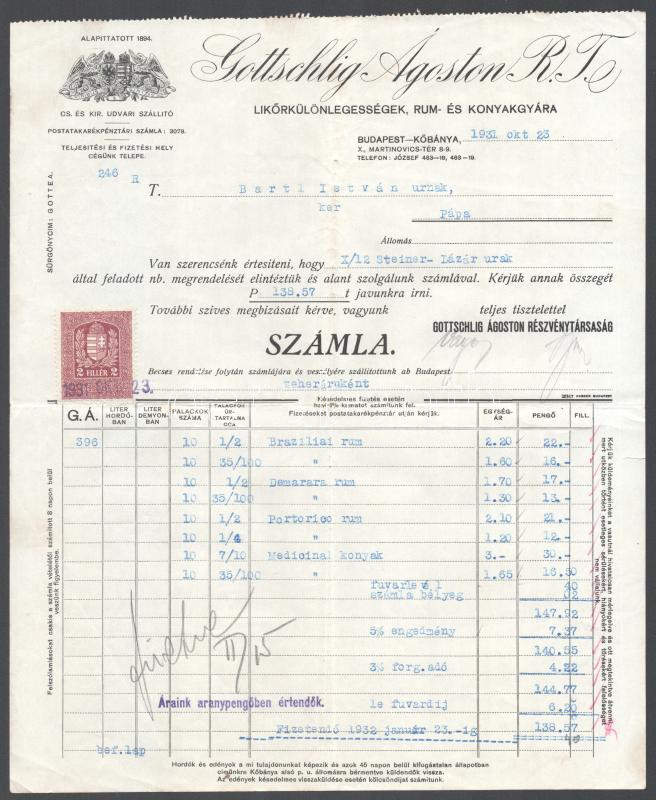 ALAPITTATOTT 1894.
Gottschlig Ágoston R.T.
CS. ÉS KIR. UDVARI SZÁLLITÓ
LIKŐRKÜLÖNLEGESSÉGEK, RUM- ÉS KONYAKGYÁRA
POSTATAKARÉKPÉNZTÁRI SZÁMLA: 3079.
TELJESITÉSI ÉS FIZETÉSI HELY
CÉGÜNK TELEPE.
BUDAPEST—KŐBÁNYA, 1931 okt 23
X., MARTINOVICS-TÉR 8-9.
TELEFON: JÓZSEF 463—18, 463—19.
SÜRGÖNYCIM: GOTTEA.
246 R
T. Bartl István urnak,
ker
Pápa
Állomás
Van szerencsénk értesiteni, hogy X/12 Steiner- Lázár urak
által feladott nb. megrendelését elintéztük és alant szolgálunk számlával. Kérjük annak összegét
P 138.57 t javunkra irni.
További szives megbizásait kérve, vagyunk teljes tisztelettel
GOTTSCHLIG ÁGOSTON RÉSZVÉNYTÁRSASÁG
2 FILLÉR 2
1931 23.
SZÁMLA.
Becses rendelése folytán számlájára és veszélyére szállitottunk ab Budapest
teheráruként
G.Á. LITER HORDÓ-BAN LITER DEMYON-BAN PALACKOK SZÁMA PALACKOK ÜR-TARTALMA Késedelmes fizetés esetén kamatot számitunk fel. Fizetéseket postatakarékpénztár utján kérjük. EGYSÉG-ÁR PENGŐ FILL.
396 10 1/2 Braziliai rum 2.20 22.-
10 35/100 " 1.60 16.-
10 1/2 Demarara rum 1.70 17.-
10 35/100 " 1.30 13.-
10 1/2 Portorico rum 2.10 21.-
10 1/4 " 1.20 12.-
10 7/10 Medicinal konyak 3.- 30.-
10 35/100 " 1.65 16.50
fuvarlevél 40
számla bélyeg 02
147.92
5% engedmény 7.37
140.55
3% forg.adó 4.22
144.77
le fuvardij 6.20
138.57
Áraink aranypengőben értendők.
Fizetendő 1932 január 23.-ig
bef.lap
Felszólamlásokat csakis a számla vételétől számitott 8 napon belül
veszünk figyelembe.
Kérjük küldeményeinket a vasutnál hivatalosan mérlegelve és ott megtekintve átvenni,
mert utközben történt esetleges sérülésekért, hiányokért és törésekért felelősséget
nem vállalunk.
Hordók és edények a mi tulajdonunkat képezik és azok 45 napon belül kifogástalan állapotban
cimünkre Kőbánya alsó p. u. állomásra bérmentve küldendők vissza.
Az edények késedelmes visszaküldése esetén kölcsöndijat számitunk.